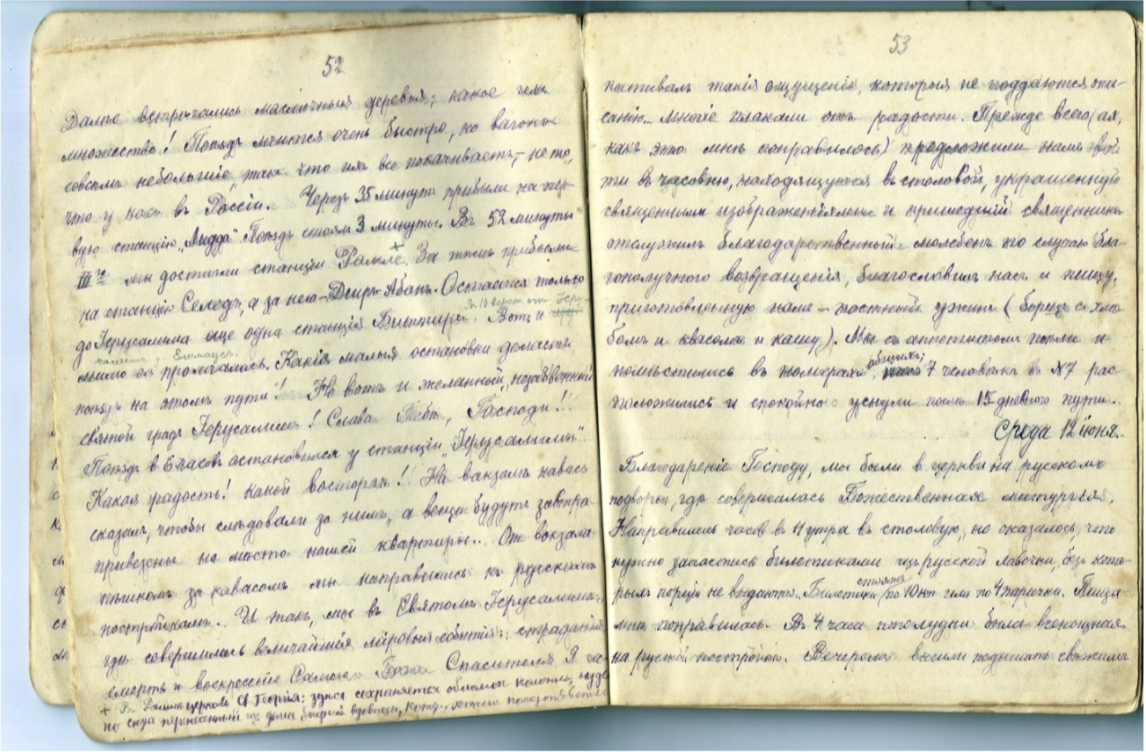 52
Далѣе встрѣчались масличныя деревья; какое ихъ
множество! Поѣздъ мчится очень быстро, но вагоны
совсѣмъ небольшіе, такъ что ихъ все покачиваетъ, – не то,
что у насъ въ Россіи. Черезъ 35 минутъ прибыли на пер-
вую станцію „Лидда“ Поѣздъ стоялъ 3 минуты. Въ 52 минуты
мы достигли станціи Рамле. + За тѣмъ прибыли
на станцію Селедъ, а за нею – Деиръ Абанъ. Остается только
до Іерусалима еще одна станція Биттиръ. Вотъ и
мимо ея промчались. Какія малыя остановки дѣлаетъ
поѣздъ на этомъ пути! Но вотъ и желанный,
святой градъ Іерусалимъ! Слава Тебѣ, Господи!!!
Поѣздъ в 6 часов остановился у станціи „Іерусалимъ“.
Какая радость! какой восторгъ! На вокзалѣ кавасъ
сказалъ, чтобы слѣдовали за нимъ, а вещи будутъ завтра
привезены на мѣсто нашей квартиры.. От вокзала
пѣшкомъ за кавасомъ мы направились къ русскимъ
постройкамъ.. И такъ, мы въ Святомъ Іерусалимѣ,
гдѣ совершились величайшія міровыя событія: страданія
смерть и воскресеніе Самого Бога Спасителя. Я ис-
+ Въ Рамлѣ церковь св. Георгія: здѣсь сохраняется обломок колонны,
но сюда перенесенный из дома бѣдной вдовицы,
53
пытывалъ такія ощущенія, которыя не поддаются опи-
санію... многіе плакали отъ радости. Прежде всего (ах,
какъ это мнѣ понравилось) предложили намъ вой-
ти въ часовню, находящуюся въ столовой, украшенную
священными изображеніями и пришедшій священникъ
отслужилъ благодарственный молебенъ по случаю бла-
гополучного возвращенія, благословилъ насъ и пищу,
приготовленную намъ – постный ужинъ (борщъ с хлѣ-
бомъ и квасомъ и кашу). Мы съ аппетитомъ поѣли и
помѣстились въ номерахъ общихъ; 7 человѣкъ в №7 рас-
положились и спокойно уснули послѣ 15 дневного пути..
Среда 12 іюня.
Благодареніе Господу, мы были в церкви на русскомъ
подворьѣ, гдѣ совершалась Божественная литургія.
Направились часов в 11 утра въ столовую, но оказалось, что
нужно запастись билетиками изъ русской лавочки, безъ кото-
рыхъ порціи не выдаютъ. Билетики стоятъ по 10 коп или по 4 парички. Пища
мнѣ понравилась. Въ 4 часа пополудни была всенощная
на русской постройкѣ. Вечеромъ вышли подышать свѣжимъ